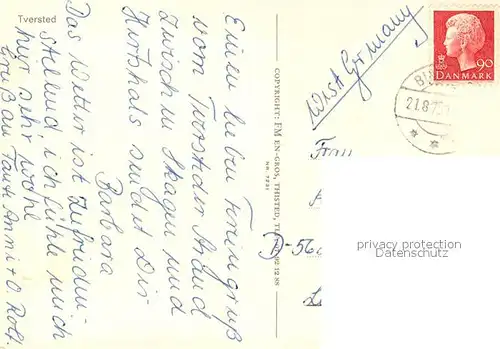 Tversted
Einen lieben Feriengruß
vom Tverstder Strand
zwischen Skagen und
Hirtshals sendet Dir
Barbara
Das Wetter ist zufrieden-
stellend ich fühle mich
hier sehr wohl
Gruß an Tante Anmi + O. Rolf.
COPYRIGHT: FM EN-GROS, THISTED, TL
02 12 88
West Germany
90
DANMARK
21.8.75
Frau
D-560
privacy protection
AnsichtskartenVersand.com